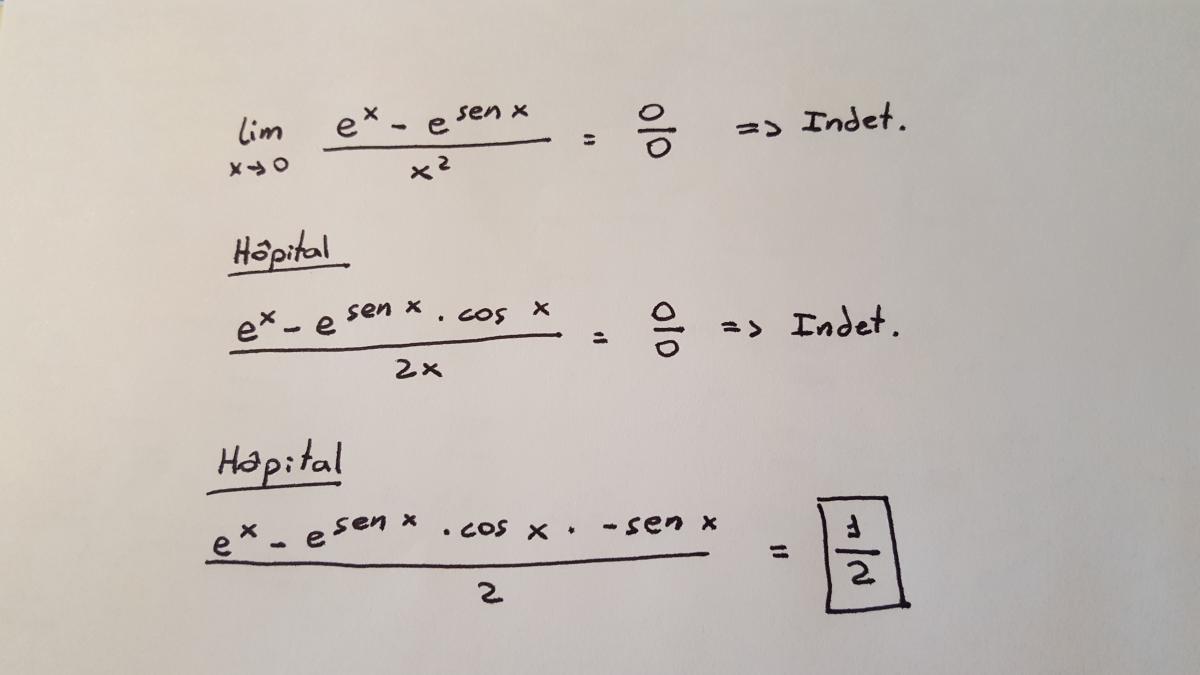 lim x→0 (e^x - e^(sen x)) / x^2 = 0/0 => Indet.
Hôpital
(e^x - e^(sen x) · cos x) / 2x = 0/0 => Indet.
Hôpital
(e^x - e^(sen x) · cos x · -sen x) / 2 = 1/2